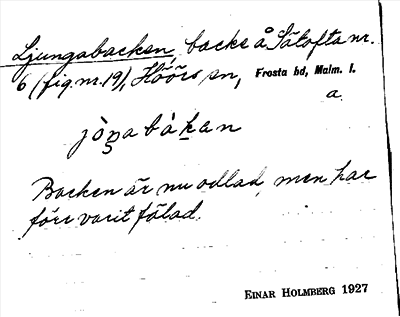 Ljungabacken, backe å Sätofta nr.
6 (fig nr. 19), Höörs sn, Frosta hd, Malm. l.
a.
jòŋabàkan
Backen är nu odlad, men har
förr varit fälad.
EINAR HOLMBERG 1927